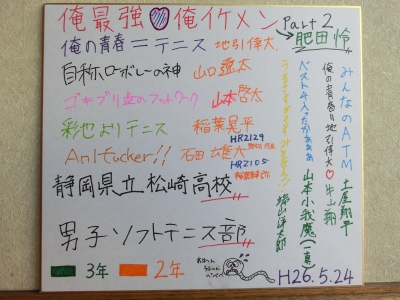 俺最強♥俺イケメン Part2
→肥田 怜
俺の青春=テニス 地引偉大.
自称ロボレーの神 山口遼太
ゴキブリ並のフットワーク 山本啓太
彩也よりテニス 稲葉晃平
HR2129
An1fucker!! 石田雄大
HR2105
静岡県立松崎高校
男子ソフトテニス部
3年 2年
みんなのATM 土屋翔平
俺の青春より地引偉大♡牛山翔
ベスト4入ったかぁぁぁ 山本小我魔(一真)
H26.5.24